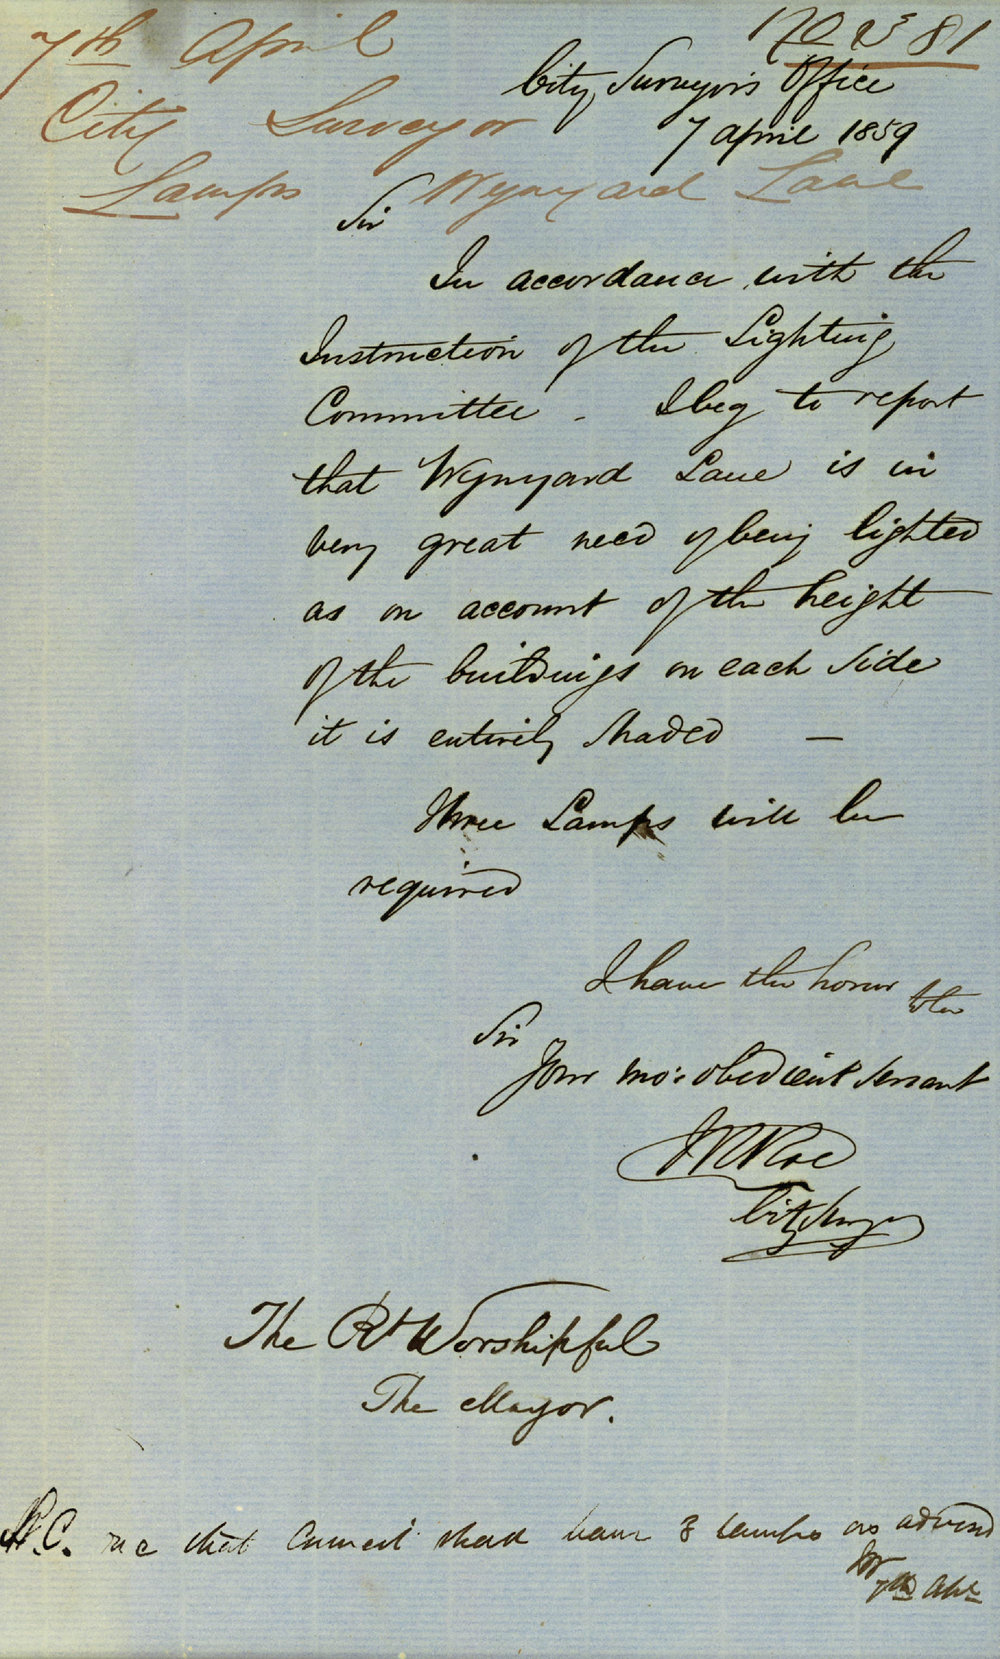 7th April
City Surveyor
Lamps Wynyard Lane
City Surveyor's Office
7 april 1859
Sir
In accordance with the
Instruction of the Lighting
Committee - I beg to report
that Wynyard Lane is in
very great need of being lighted
as on account of the height
of the buildings on each side
it is entirely shaded —
Three Lamps will be
required
I have the honor to be
Sir
Your mo: obedient servant
City Surveyor
The Rt Worshipful
The Mayor.
L.C. rec that Council shall have 3 lamps as advised
7th Apl